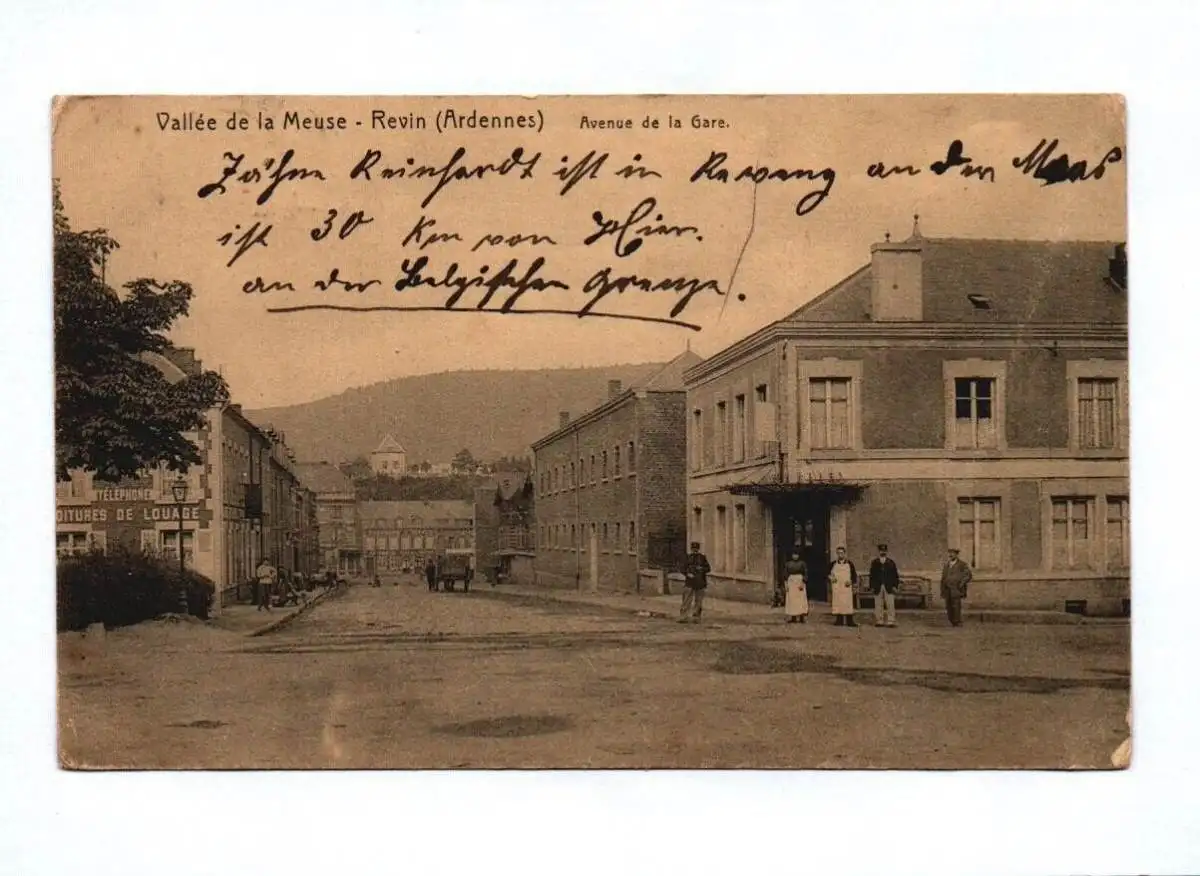 Vallée de la Meuse - Revin (Ardennes) Avenue de la Gare.
Zähne Reinhardt ist in Rewang an der Maas
ist 30 Km von Hier.
an der Belgischen Grenze.
TÉLÉPHONE
OITURES DE LOUAGE